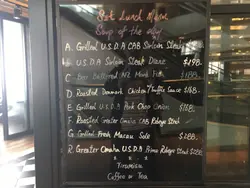 Set Lunch Menu
Soup of the day
A. Grilled U.S.D.A CAB Sirloin Steak
U.S.D.A Sirloin Steak Diane $198
C Pan $188
D. Roasted Denmark Chicken / Truffle Sauce $168
E Grilled U.S.A Pork Chop Onion $168
F. Roasted Greater Omaha CAB Ribeye Steak
G. Grilled Fresh Macau Sole $288
R. Greater Omaha U.S.D.A Prime Ribeye Steak $288
***
Tiramisu
Coffee or Tea